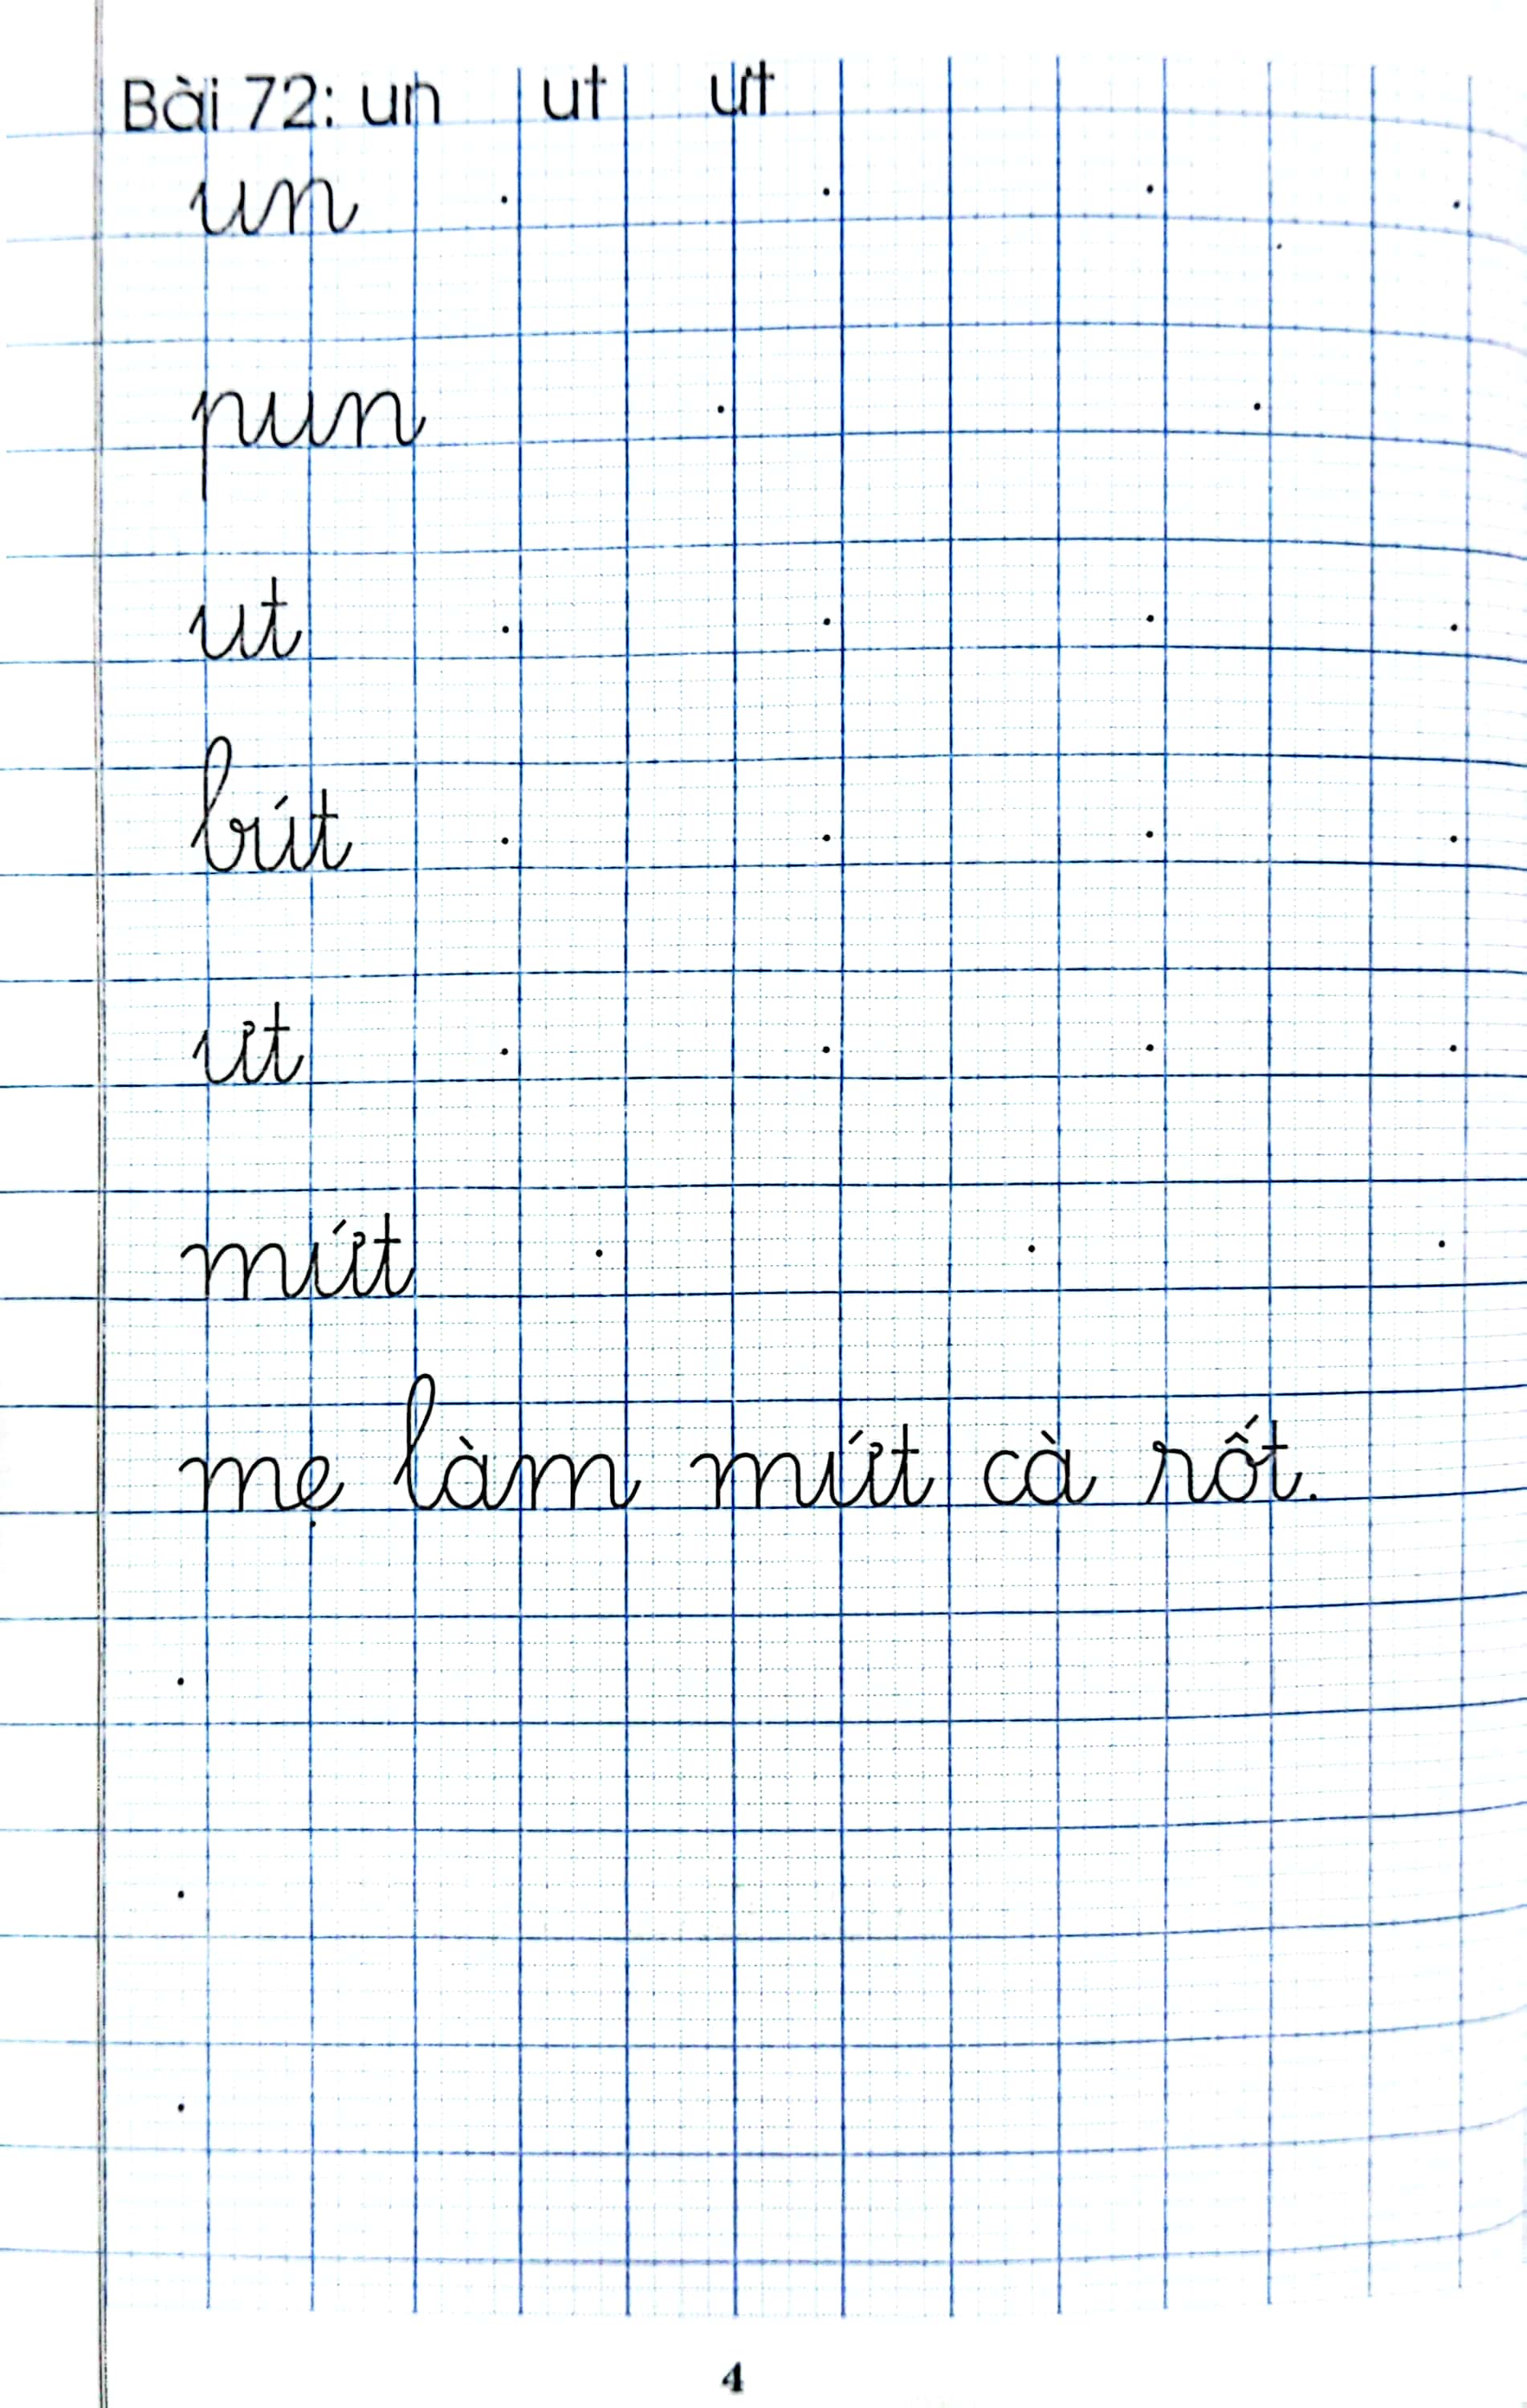 Bài 72: un ut ưt
un
pun
ut
bút
ưt
mứt
mẹ làm mứt cà rốt.
4